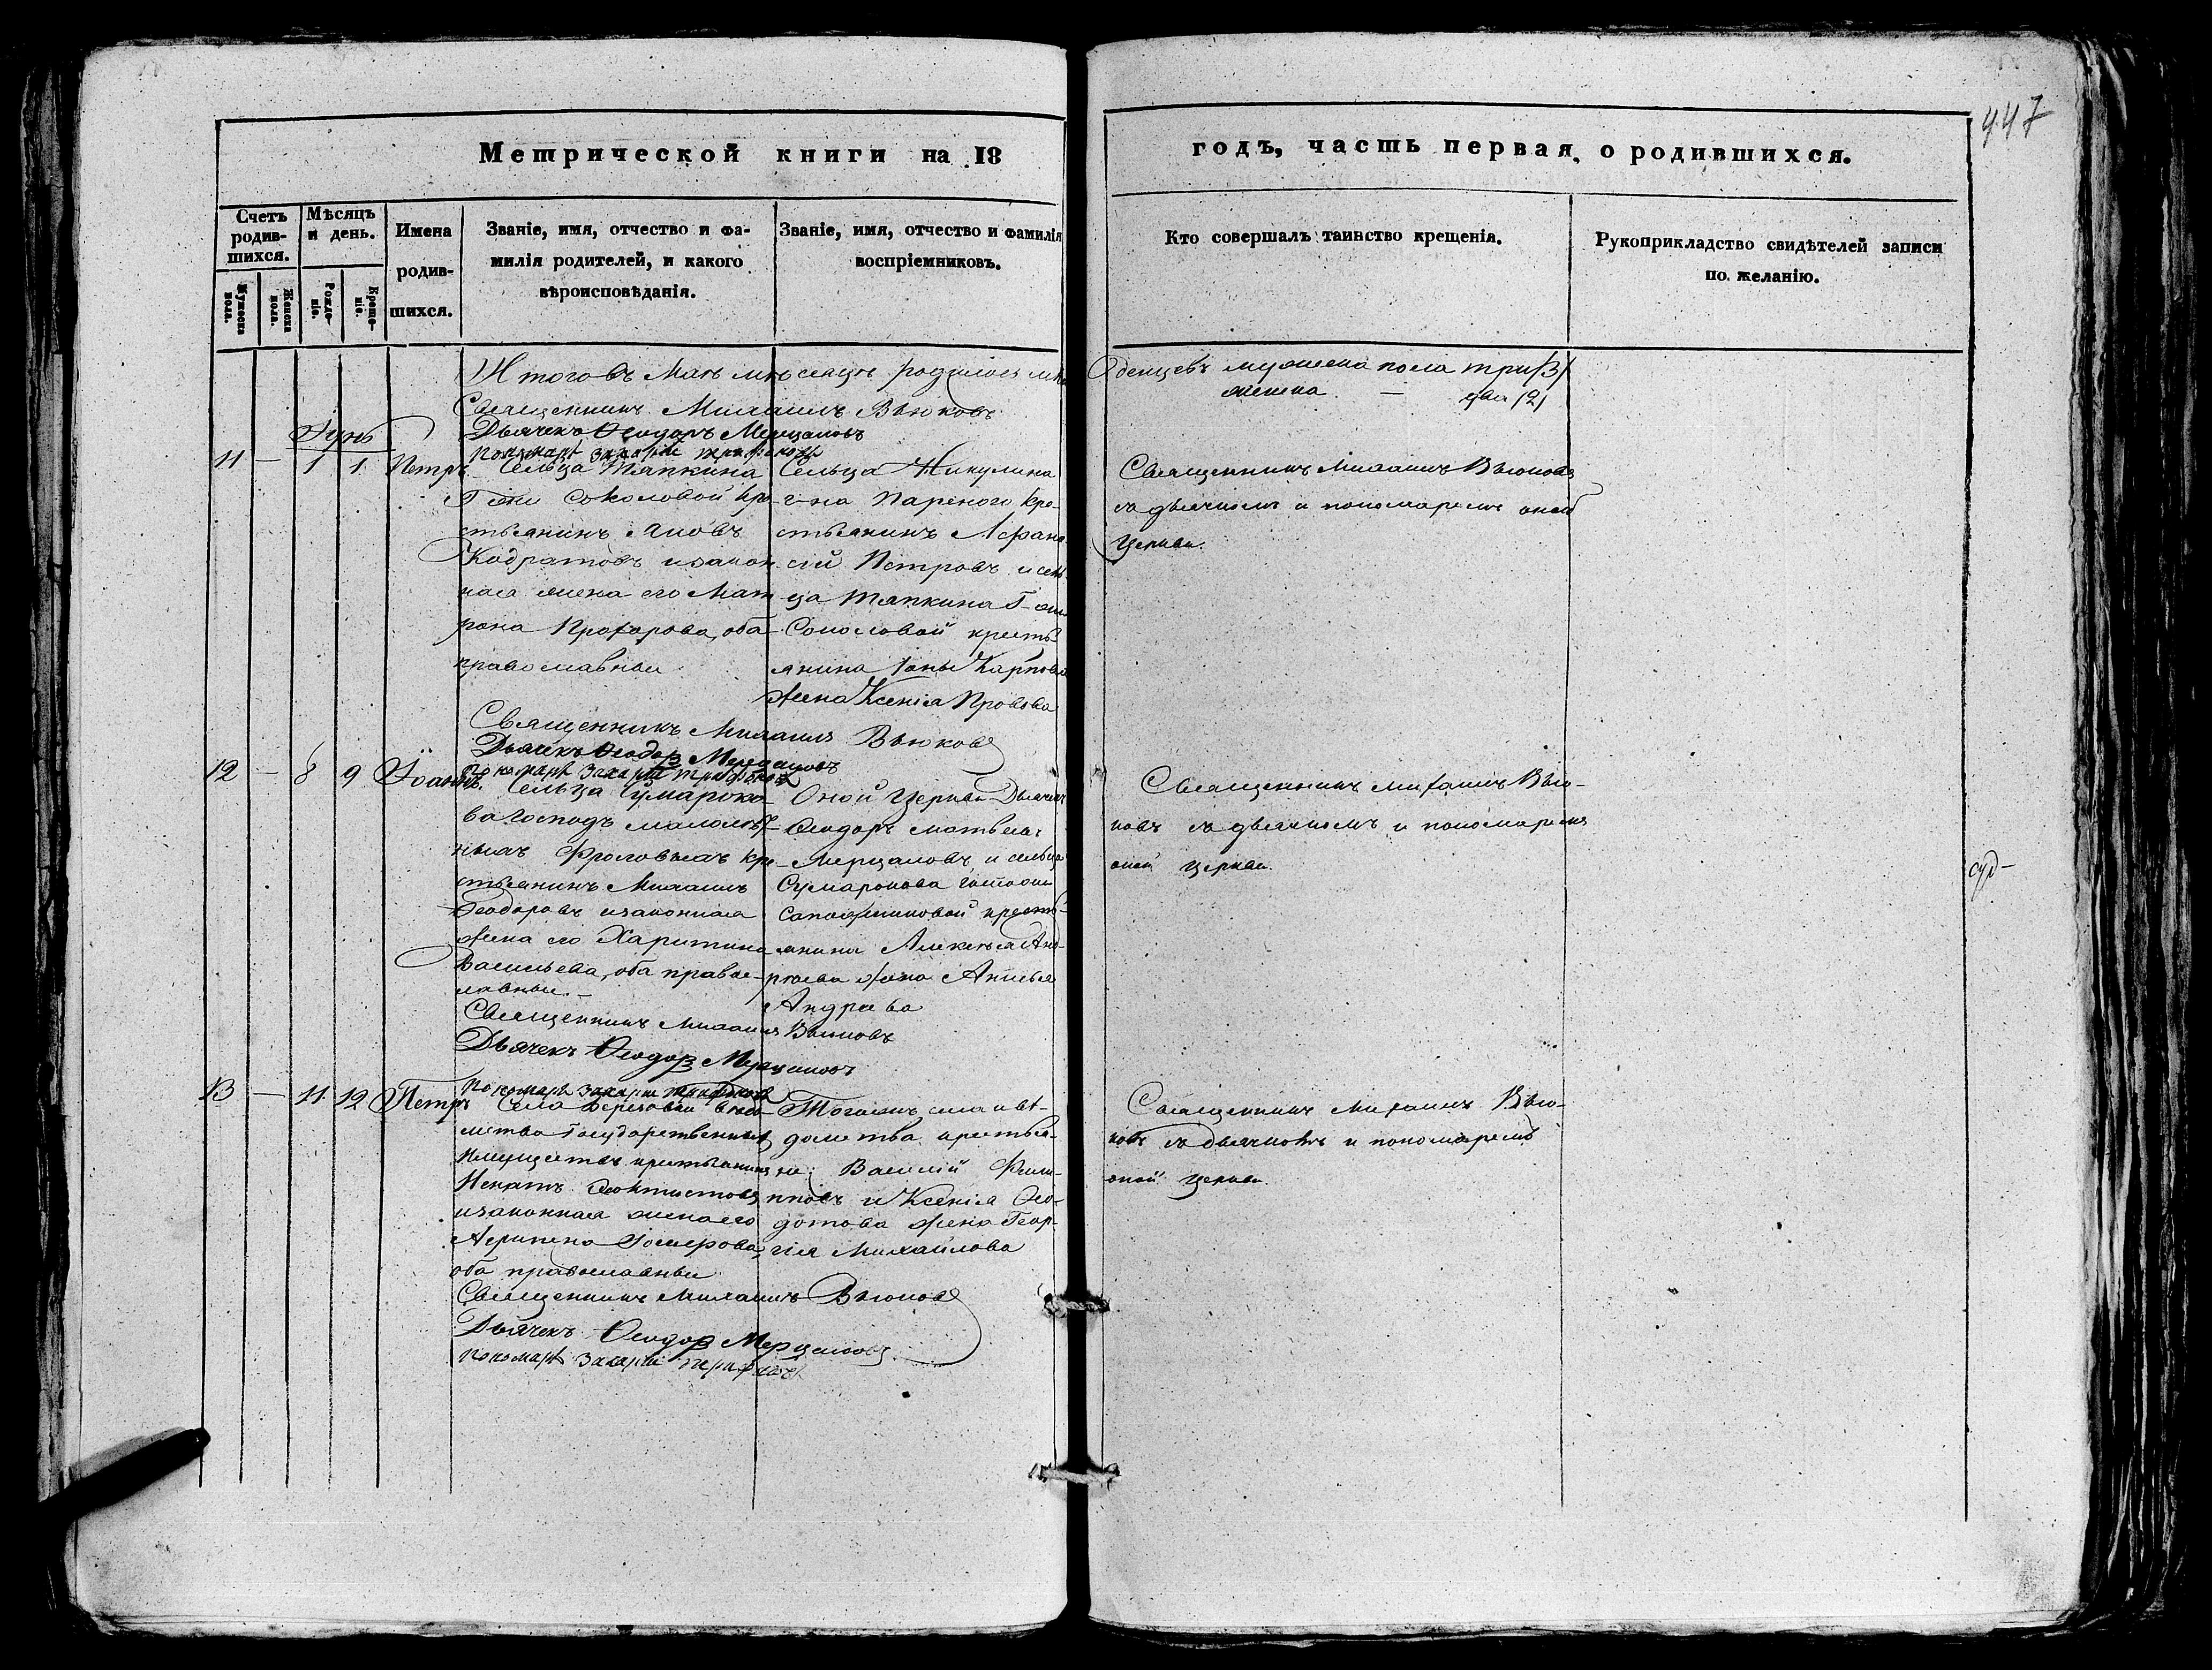 447
Метрической книги на 18
годъ, часть первая, о родившихся.
Счетъ родив-шихся.
Мужеска пола.
Женска пола.
Мѣсяцъ и день.
Рожде-нія.
Креще-нія.
Имена
родив-
шихся.
Званіе, имя, отчество и фа-
милія родителей, и какого
вѣроисповѣданія.
Званіе, имя, отчество и фамилія
воспріемниковъ.
Кто совершалъ таинство крещенія.
Рукоприкладство свидѣтелей записи
по желанію.
Итого въ Маѣ мѣсяцѣ родилось мла
денцевъ мужеска пола три /3/
женска — два /2/
Священникъ Михаилъ Вьюковъ
Дьячекъ Ѳеодоръ Мерцаловъ
Пономарь Захарій Трифоновъ
Іунь
11 — 1 1. Петръ.
Сельца Тяпкина
Г-жи Соколовой кре-
стьянинъ Яковъ
Кодратовъ и закон-
ная жена его Мат
рона Прохорова, оба
православныи
Сельца Никулина
г-на Пареного кре-
стьянинъ Афана-
сій Петровъ и сель
ца Тяпкина Г-жи
Соколовой кресть-
янина Іоны Карпова
жена Ксенія Провова
Священникъ Михаилъ Вьюковъ
съ дьячкомъ и пономаремъ оной
Церкви.
Священникъ Михаилъ Вьюковъ
Дьячекъ Ѳеодоръ Мерцаловъ
Пономарь Захарій Трифоновъ
12 — 8 9 Іоаннъ.
Сельца Сумароко-
ва Господъ малолѣт-
ныхъ Фроловыхъ кре-
стьянинъ Михаилъ
Ѳеодоровъ и законная
жена его Харитина
Васильева, оба правос-
лавныи.—
Оной Церкви Дьячекъ
Ѳеодоръ Матвѣевъ
Мерцаловъ и сельца
Сумарокова Госпожи
Сапожниковой кресть-
янина Алексѣя Анд-
рѣева жена Анисья
Андреева
Священникъ Михаилъ Вью-
ковъ съ дьячкомъ и пономаремъ
оной церкви.
Священникъ Михаилъ Вьюковъ
Дьячекъ Ѳеодоръ Мерцаловъ
Пономарь Захарій Трифоновъ
13 — 11 12 Петръ
Села Березовки вѣдо-
мства Государственныхъ
Имуществъ крестьянинъ
Ѳеоктистовъ
и законная жена его
Агрипена
оба православныи
Тогожъ села и вѣ-
домства крестья-
не: Василій Фили-
повъ и Ксенія Ѳео-
дотова жена Геор-
гія Михайлова
Священникъ Михаилъ Вью-
ковъ съ дьячкомъ и пономаремъ
оной церкви.
Священникъ Михаилъ Вьюковъ
Дьячекъ Ѳеодоръ Мерцаловъ
Пономарь Захарій Трифоновъ